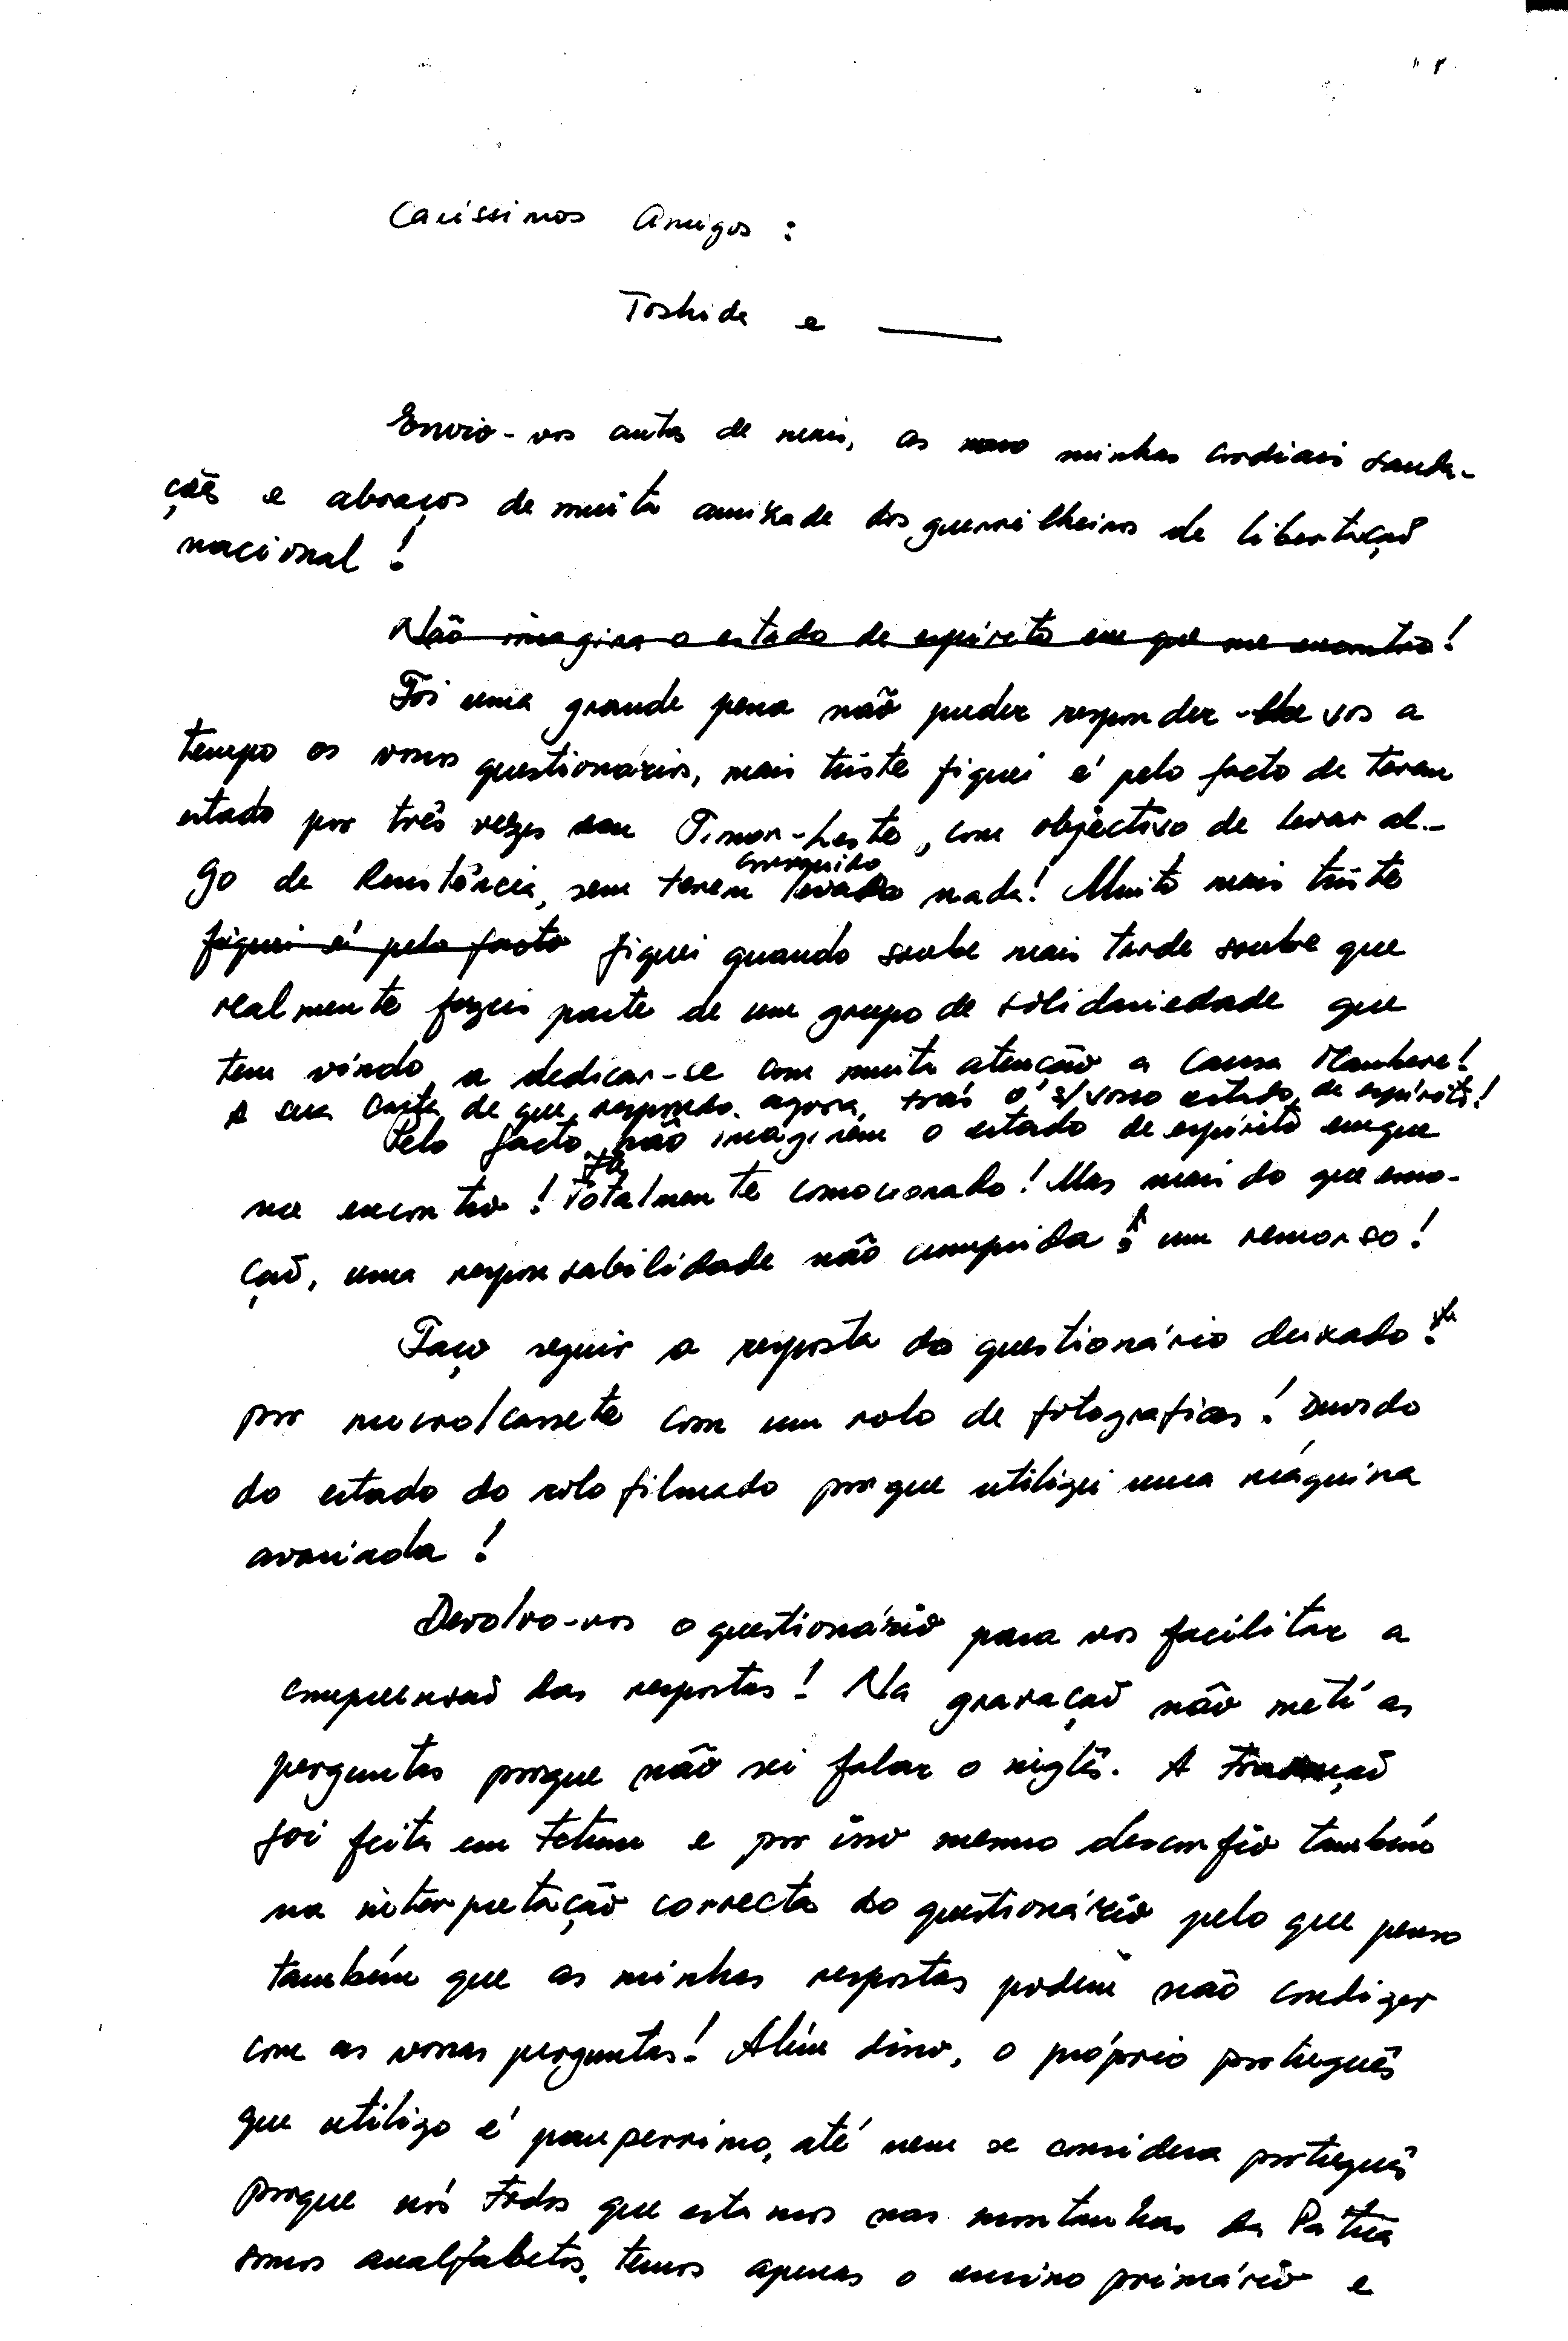 Caríssimos Amigos :
Toshide e ———
Envio-vos antes de mais, as minhas cordiais sauda-
ções e abraços de muita amizade dos guerrilheiros de libertação
nacional !
Não imagina o estado de espírito em que me encontro !
Foi uma grande pena não puder responder-vos a
tempo os vossos questionários, mais triste fiquei é pelo facto de terem
estado por três vezes em Timor-Leste, com objectivo de levar al-
go de Resistência, sem terem conseguido nada ! Muito mais triste
fiquei é pelo facto fiquei quando soube mais tarde soube que
realmente fazeis parte de um grupo de solidariedade que
tem vindo a dedicar-se com muita atenção a Causa Maubere !
A sua carta de que respondo agora, traz o s/vosso estado de espírito !
Pelo facto, não imaginem o estado de espírito em que
me encontro ! Totalmente comocionado ! Mas mais do que emo-
ção, uma responsabilidade não cumprida é um remorso !
Faço seguir a resposta do questionário deixado
por micro/cassete com um rolo de fotografias ! Duvido
do estado do rolo filmado porque utilizei uma máquina
avariada !
Devolvo-vos o questionário para vos facilitar a
compreensão das respostas ! Na gravação não meti as
perguntas porque não sei falar o inglês. A tradução
foi feita em Tetum e por isso mesmo desconfio também
na interpretação correcta do questionário pelo que penso
também que as minhas respostas podem não condizer
com as vossas perguntas ! Além disso, o próprio português
que utilizo é pauperrimo, até nem se considera português
porque nós todos que estamos nas montanhas da Pátria
somos analfabetos, temos apenas o ensino primário e